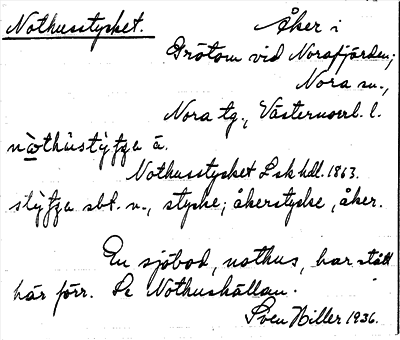 Nothusstycket.
Åker i
Drötom vid Norafjärden;
Nora sn.,
Nora tg., Västernorrl. l.
Nothusstycket L sk hdl. 1863.
sbf. n., stycke; åkerstycke, åker.
En sjöbod, nothus, har stått
här förr. Se Nothushällan.
Sven Hiller 1936.